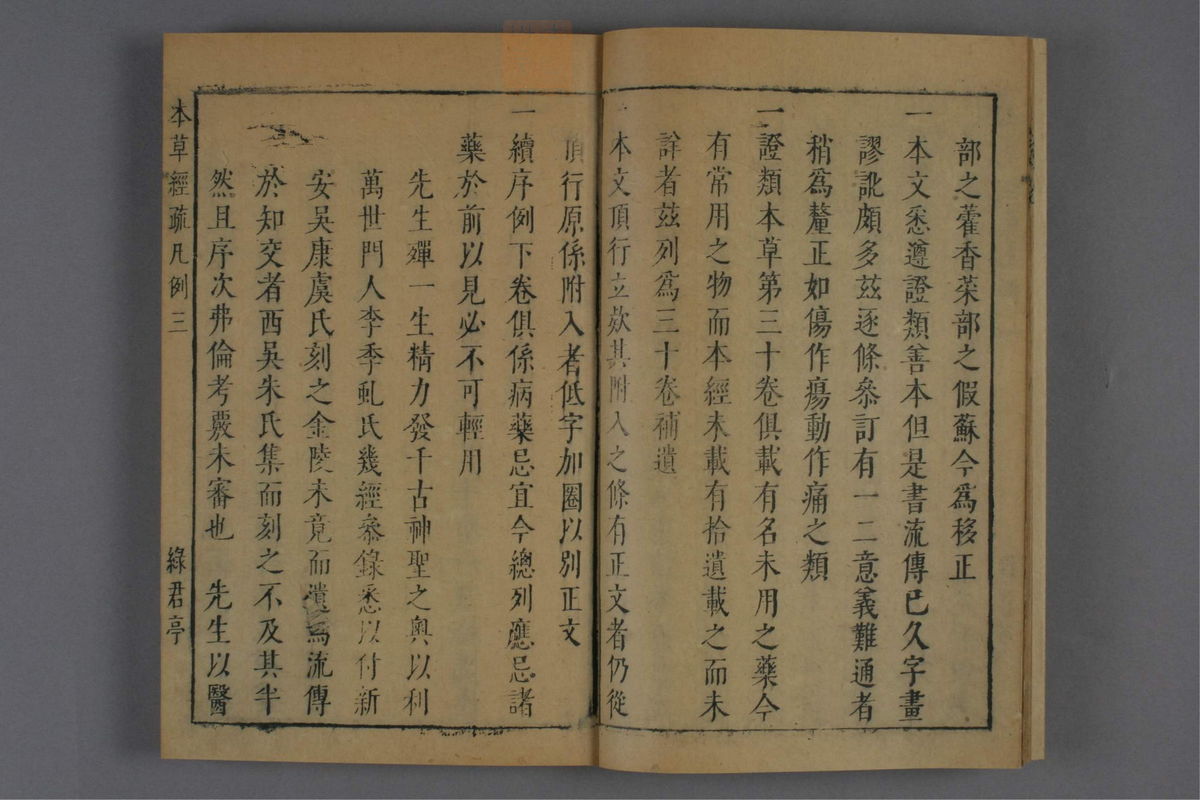 部之藿香菜部之假蘇今爲移正
一本文悉遵證類善本但是書流傳已久字畫
謬訛頗多兹逐條叅訂有一二意義難通者
稍爲釐正如傷作瘍動作痛之類
一證類本草第三十卷俱載有名未用之藥今
有常用之物而本經未載有拾遺載之而未
詳者兹列爲三十卷補遺
一本文頂行立欵其附入之條有正文者仍從
頂行原係附入者低字加圈以別正文
一續序例下卷俱係病藥忌宜今總列應忌諸
藥於前以見必不可輕用
先生殫一生精力發千古神聖之奥以利
萬世門人李季虬氏幾經叅錄悉以付新
安吴康虞氏刻之金陵未竟而遺焉流傳
於知交者西吴朱氏集而刻之不及其半
然且序次弗倫考覈未審也 先生以醫
本草經疏凡例 三 綠君亭